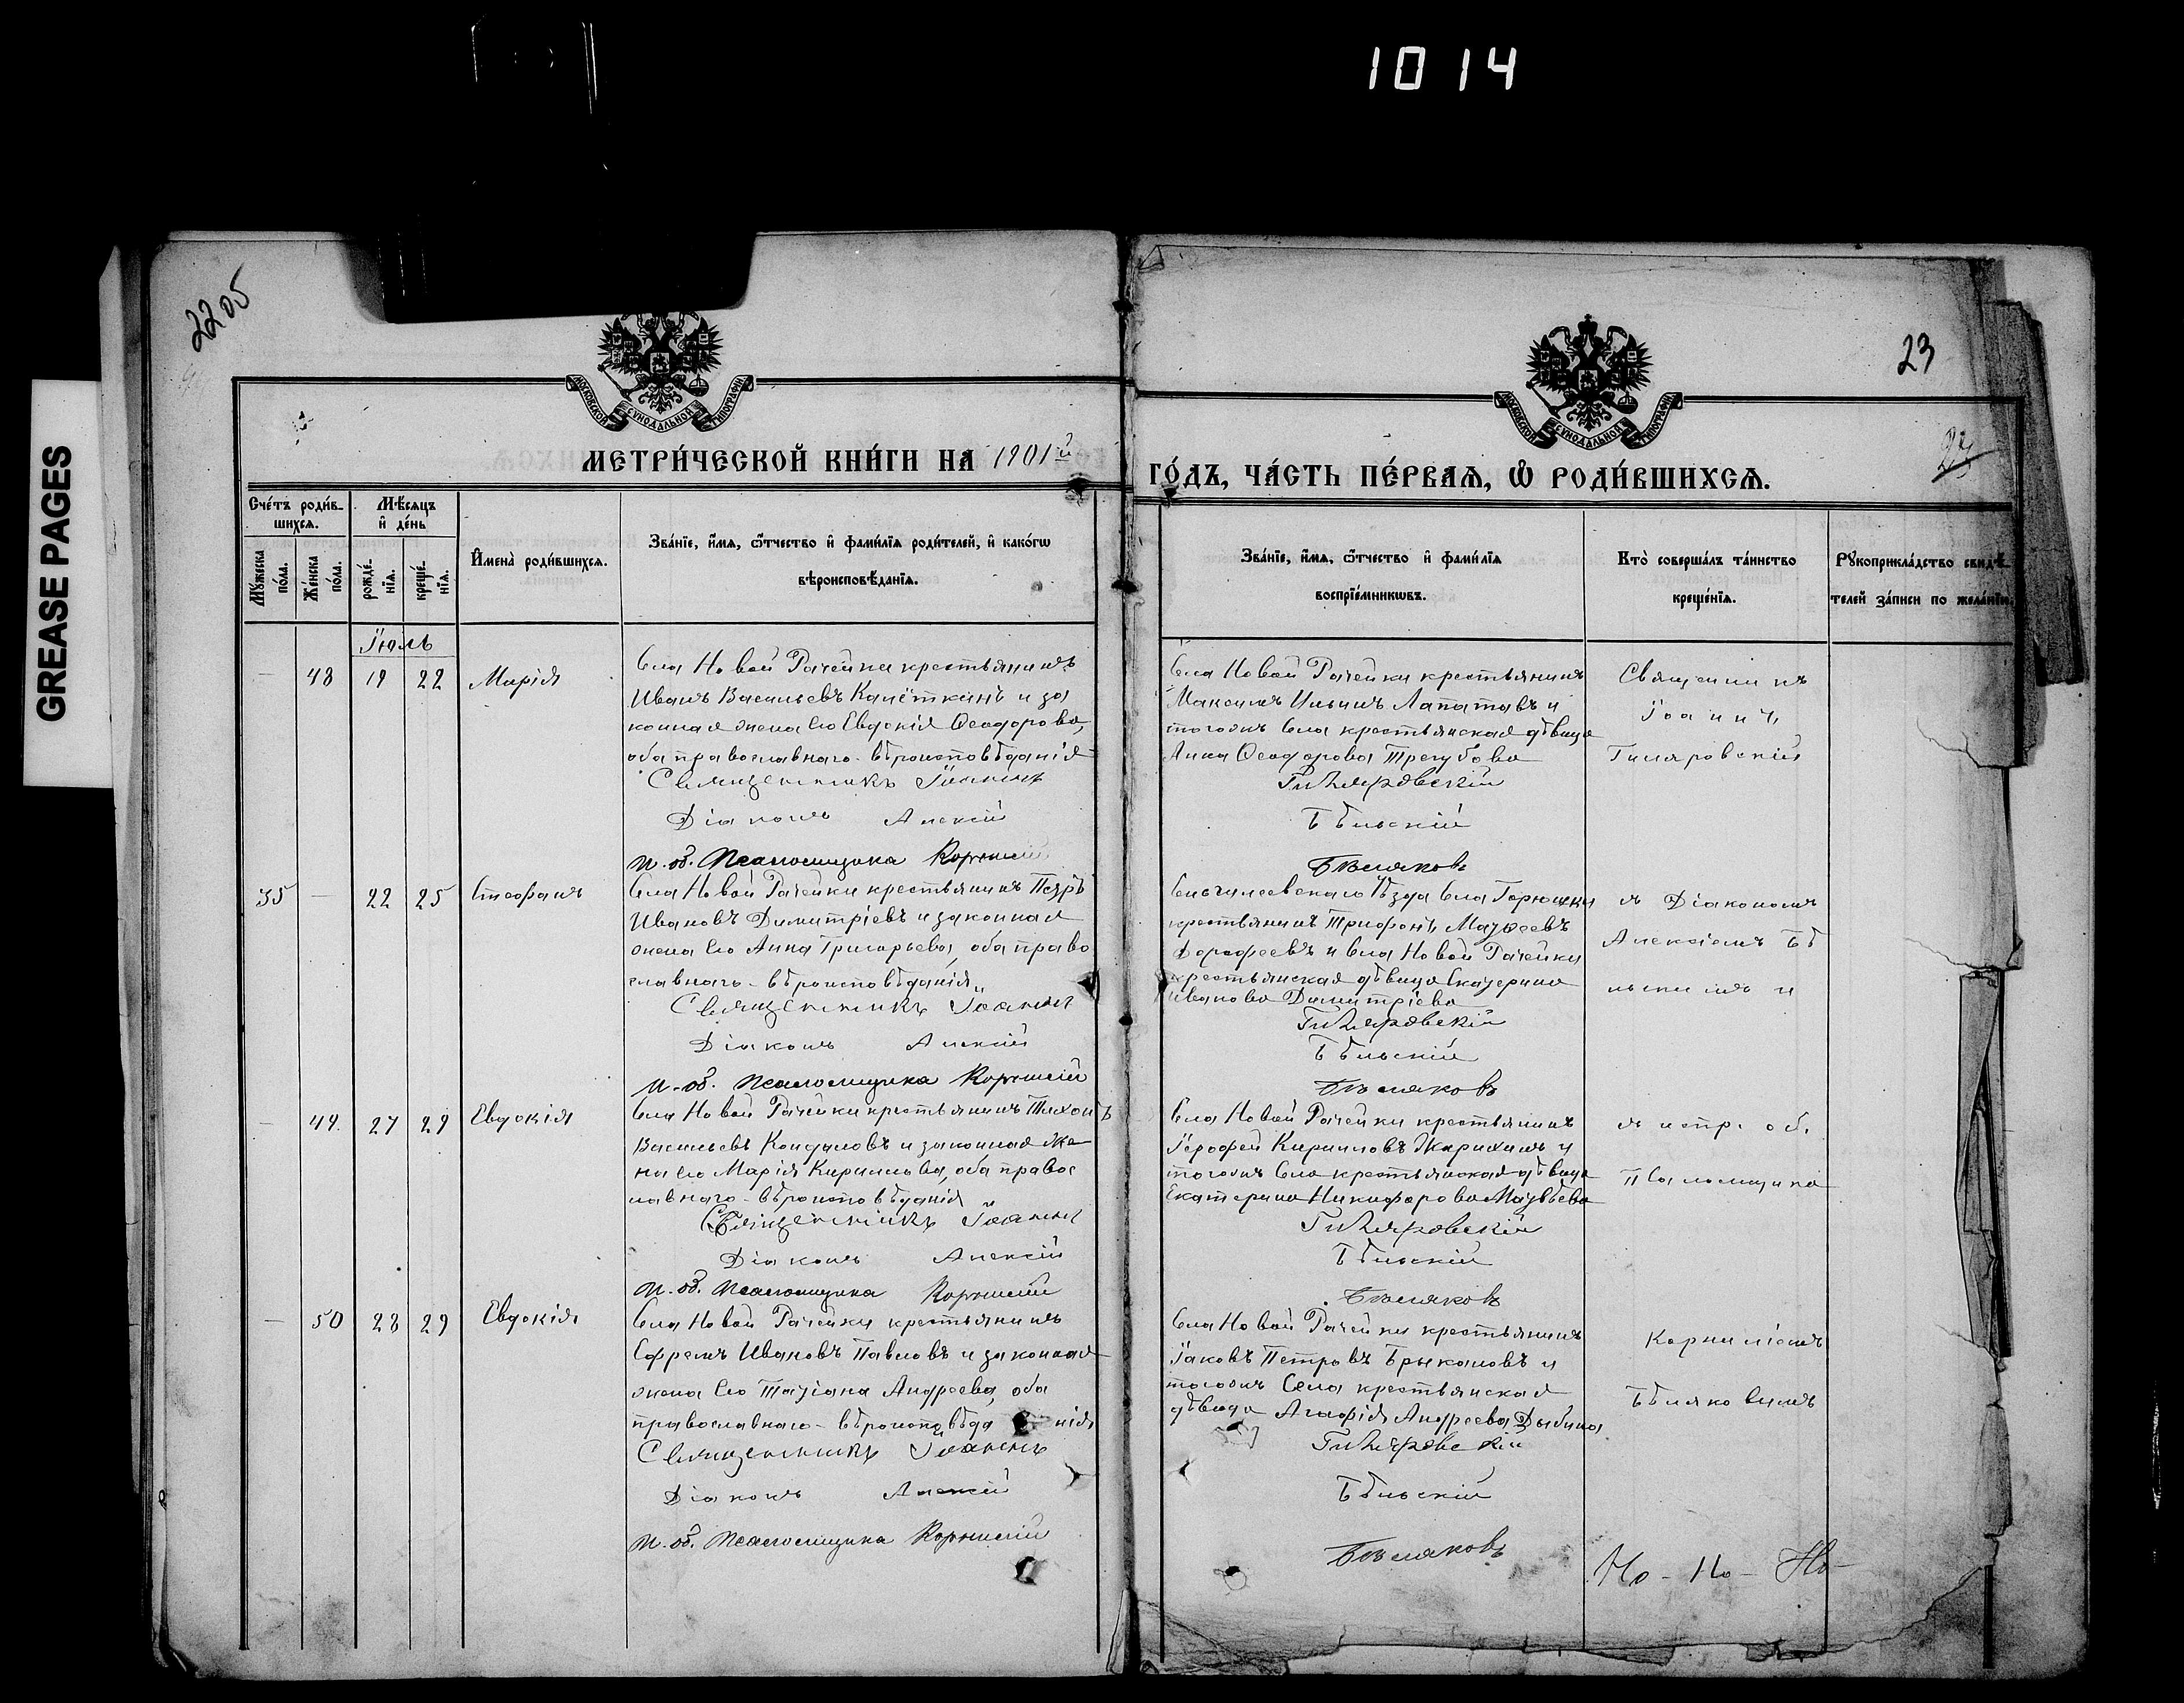 1014
GREASE PAGES
2205
23
23
МОСКОВСКОЙ СѴНОДАЛЬНОЙ ТИПОГРАФІИ
МОСКОВСКОЙ СѴНОДАЛЬНОЙ ТИПОГРАФІИ
МЕТРИ́ЧЕСКОЙ КНИ́ГИ НА 1901й
ГО́ДЪ, ЧА́СТЬ ПЕ́РВАѦ, Ѿ РОДИ́ВШИХСѦ.
Сче́тъ роди́в-
шихсѧ.
Мꙋ́жеска по́ла.
Же́нска по́ла.
Мѣ́сѧцъ
и҆ де́нь
рожде́-нїѧ.
креще́-нїѧ.
И҆мена̀ роди́вшихсѧ.
Зва́нїе, и҆́мѧ, ѻ҆́тчество и҆ фами́лїѧ роди́телей, и҆ како́гѡ
вѣроисповѣ́данїѧ.
Зва́нїе, и҆́мѧ, ѻ҆́тчество и҆ фами́лїѧ
воспрїе́мникѡвъ.
Кто̀ соверша́лъ та́инство
креще́нїѧ.
Рꙋкоприкла́дство свидѣ́-
телей за́писи по жела́нїю.
Іюль
— 48 19 22 Марія
Села Новой Рачейки крестьянинъ
Иванъ Васильевъ Калёткинъ и за
конная жена его Евдокія Ѳеодорова,
оба православнаго вѣроисповѣданія
Священникъ Іоаннъ
Діаконъ Алексій
И. об. Псаломщика Корнилій
Села Новой Рачейки крестьянинъ
Максимъ Ильинъ Лапатовъ и
тогожъ села крестьянская дѣвица
Анна Ѳеодорова Трегубова
Гиляровскій
Бѣльскій
Бѣляковъ
Священникъ
Іоаннъ
Гиляровскій
35 — 22 25 Стефанъ
Села Новой Рачейки крестьянинъ Петръ
Ивановъ Димитріевъ и законная
жена его Анна Григорьева, оба право
славнаго вѣроисповѣданія
Священникъ Іоаннъ
Діаконъ Алексій
И. об. Псаломщика Корнилій
Сенгилеевскаго Уѣзда села Горюшки
крестьянинъ Трифонъ Матѳеевъ
Дорофеевъ и села Новой Рачейки
крестьянская дѣвица Екатерина
Иванова Димитріева
Гиляровскій
Бѣльскій
Бѣляковъ
съ Діакономъ
Алексіемъ Бѣ
льскимъ и
— 49. 27 29 Евдокія
Села Новой Рачейки крестьянинъ Тихонъ
Васильевъ Кондаловъ и законная же
на его Марія Кириллова, оба правос
лавнаго вѣроисповѣданія
Священникъ Іоаннъ
Діаконъ Алексій
И. об. Псаломщика Корнилій
Села Новой Рачейки крестьянинъ
Іерофей Кирилловъ Жарихинъ и
тогожъ села крестьянская дѣвица
Екатерина Никифорова Матвѣева
Гиляровскій
Бѣльскій
Бѣляковъ
съ испр. об.
Псаломщика
— 50 28 29 Евдокія
Села Новой Рачейки крестьянинъ
Ефремъ Ивановъ Павловъ и законная
жена его Татіана Андреева, оба
православнаго вѣроисповѣданія
Священникъ Іоаннъ
Діаконъ Алексій
И. об. Псаломщика Корнилій
Села Новой Рачейки крестьянинъ
Іаковъ Петровъ Брыкаловъ и
тогожъ Села крестьянская
дѣвица Агафія Андреева Дыбина
Гиляровскій
Бѣльскій
Бѣляковъ
Корниліемъ
Бѣляковымъ